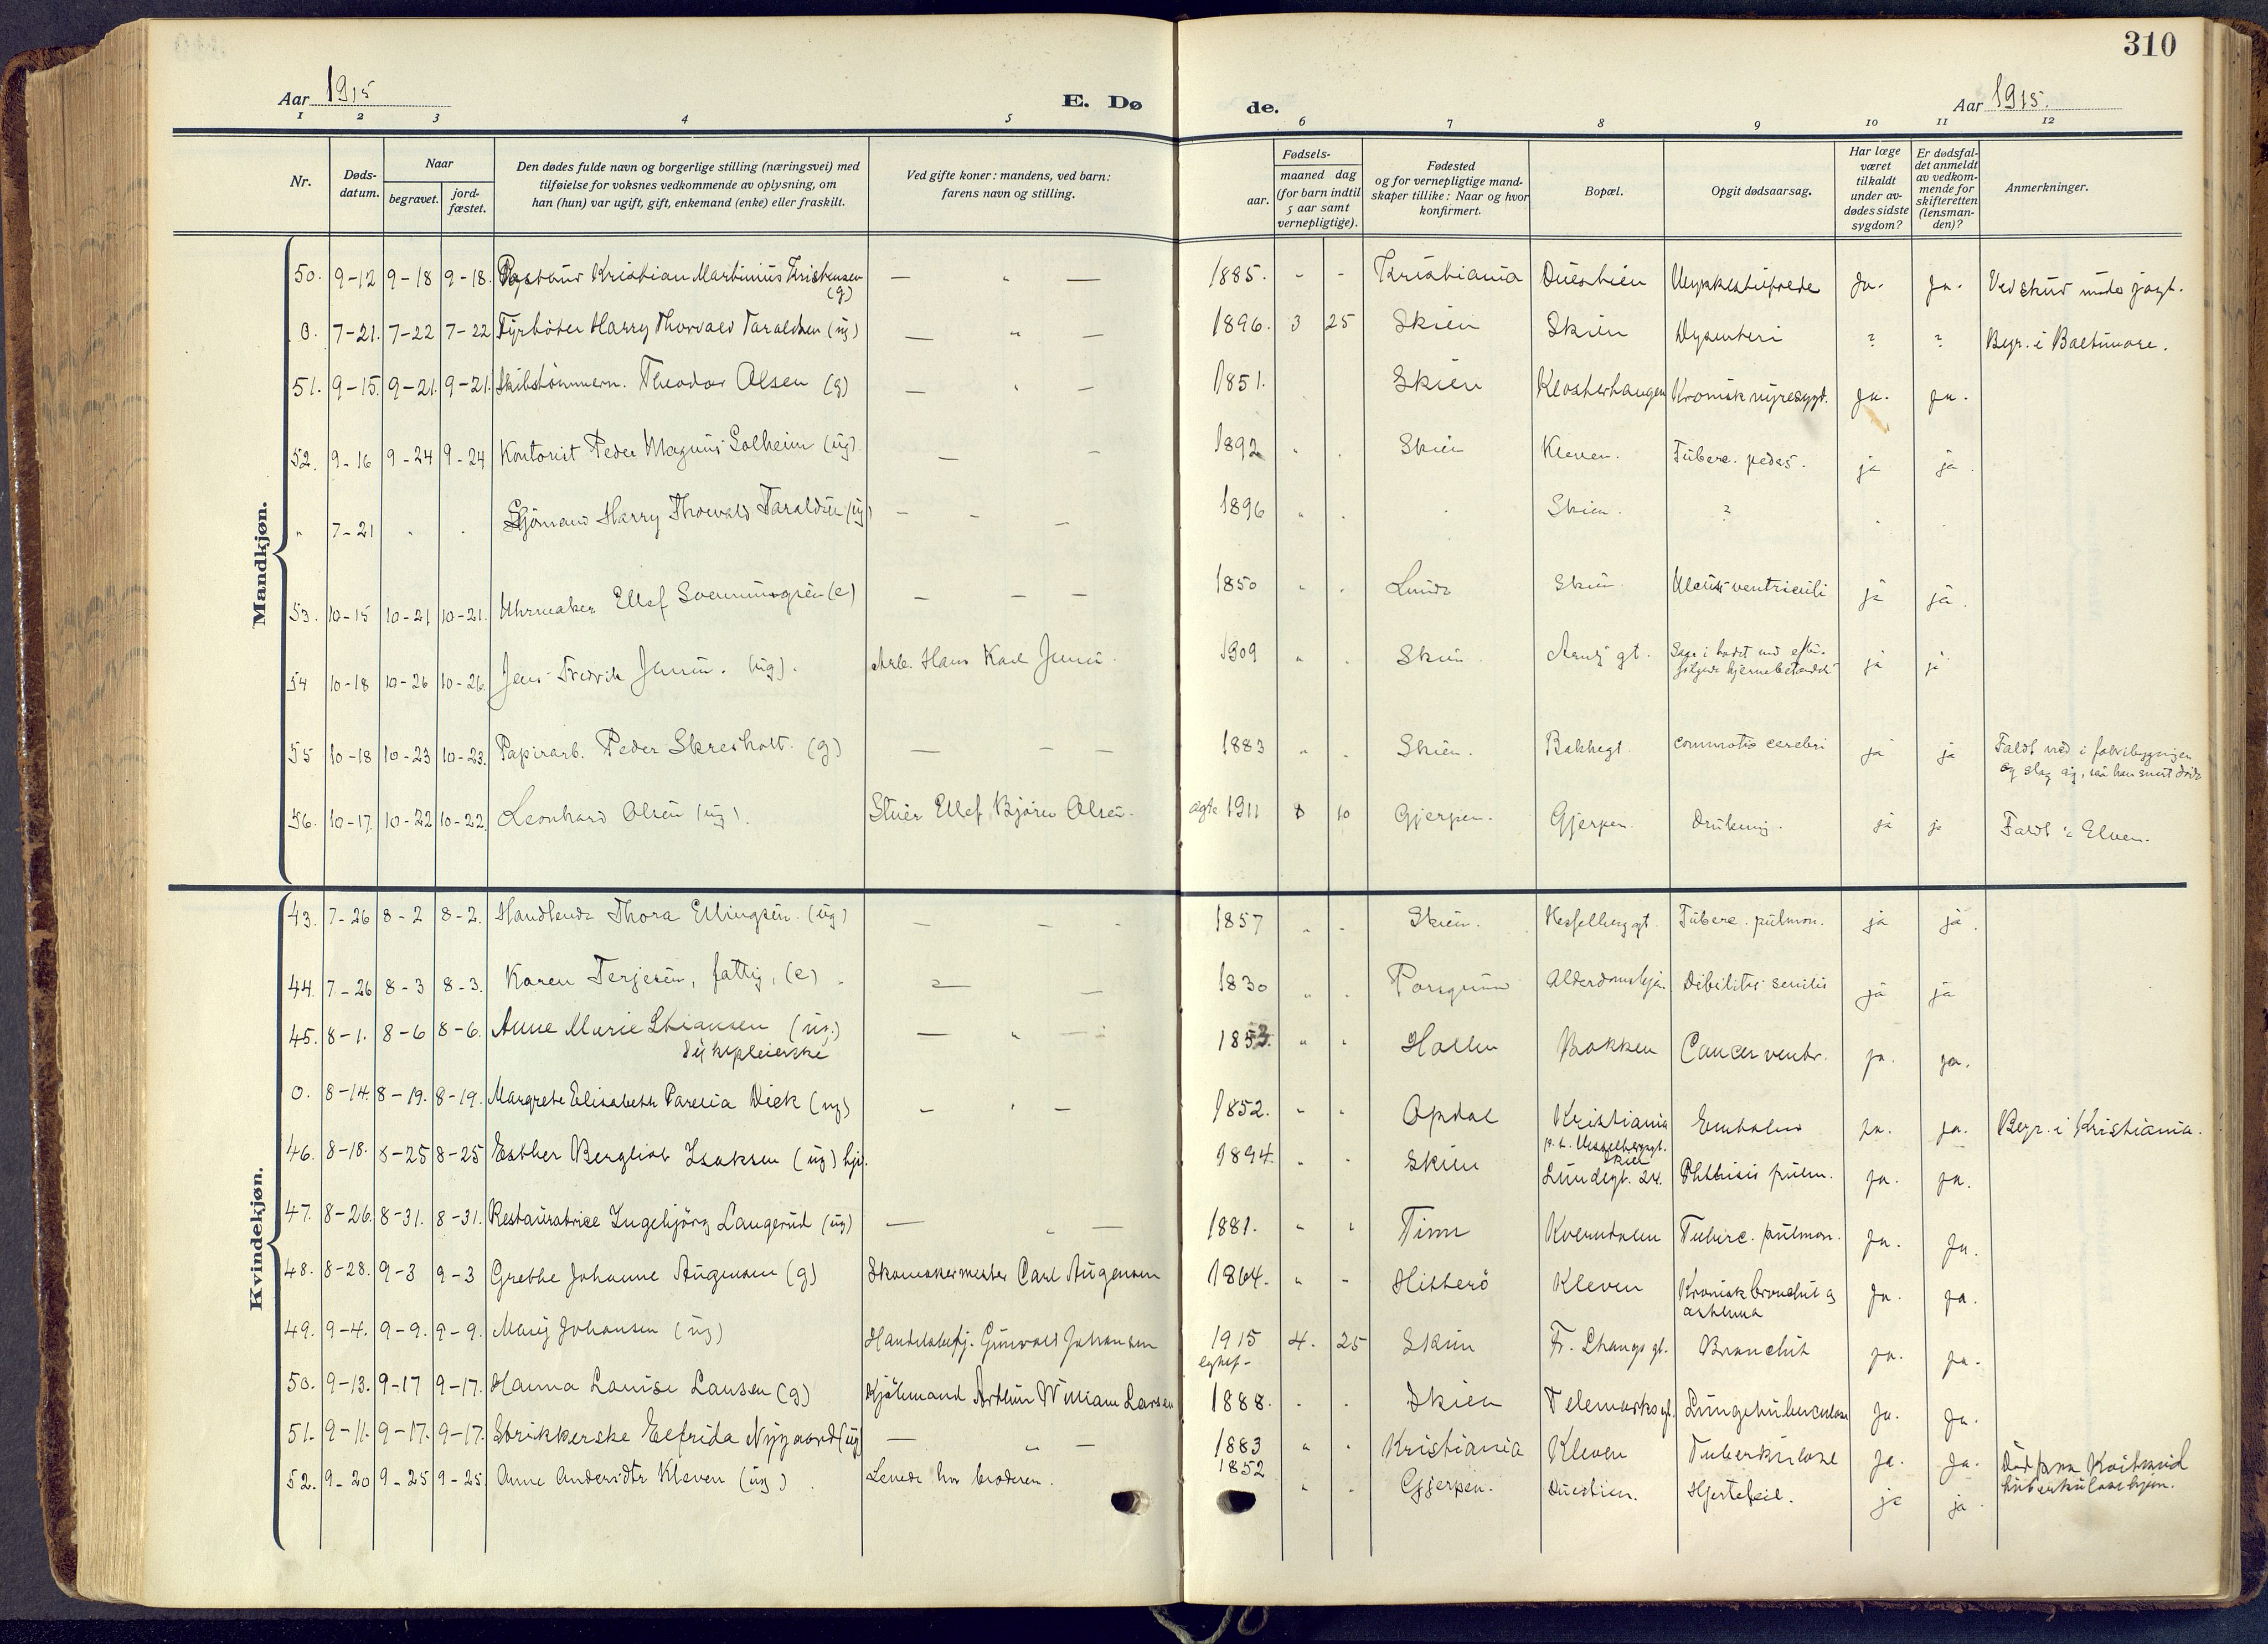 310
Aar 1915
E. Dø de.
Aar 1915.
1 2 3 4 5 6 7 8 9 10 11 12
Nr.
Døds-
datum.
Naar
begravet.
jord-
fæstet.
Den dødes fulde navn og borgerlige stilling (næringsvei) med
tilføielse for voksnes vedkommende av oplysning, om
han (hun) var ugift, gift, enkemand (enke) eller fraskilt.
Ved gifte koner: mandens, ved barn:
farens navn og stilling.
Fødsels-
aar.
maaned dag
(for barn indtil
5 aar samt
vernepligtige).
Fødested
og for vernepligtige mand-
skaper tillike: Naar og hvor
konfirmert.
Bopæl.
Opgit dødsaarsag.
Har læge
været
tilkaldt
under av-
dødes sidste
sygdom?
Er dødsfal-
det anmeldt
av vedkom-
mende for
skifteretten
(lensman-
den)?
Anmerkninger.
Mandkjøn.
50. 9-12 9-18 9-18. Kristian Martinius Kristensen (g) — " — 1885. - - Kristiania Duestien Ulykkestilfælde Ja. Ja. Ved skud under jagt.
0. 7-21. 7-22 7-22 Fyrbøter Harry Thorvald Taraldsen (ug) — " — 1896. 3 25 Skien Skien Dysenteri ? ? Begr. i Baltimore.
51. 9-15. 9-21. 9-21. Skibstømmerm. Theodor Olsen (g) — " — 1851. Skien Klosterhaugen Kronisk nyresygd. Ja. Ja.
52. 9-16 9-24 9-24 Kontorist Peder Magnus Solheim (ug) — - 1892 " . Skien Kleven. Tuberc. pedes. ja ja.
" 7-21 . . Sjømand Harry Thorvald Taraldsen (ug) - - - 1896 " . . Skien. ? . .
53. 10-15 10-21 10-21. Uhrmaker Ellef Svenningsen (e) — — — 1850 " . Lunde Skien. Ulcus ventriculi ja ja.
54 10-18 10-26 10-26. Jens Fredrik Jensen. (ug). Arb. Hans Karl Jensen. 1909 " . Skien gt. Saar i hodet med efter-
følgende hjernebetændelse ja ja
55 10-18 10-23 10-23. Papirarb. Peder Skresholt. (g) — - — 1883 " . Skien. Bakkegt. commotio cerebri ja ja Faldt ned i fabrikbygningen
og slog sig, saa han snart døde
56. 10-17. 10-22 10-22. Leonhard Olsen (ug). Stuer Ellef Bjørn Olsen. ægte 1911 8 10 Gjerpen. Gjerpen. Drukning. ja ja Faldt i Elven.
Kvindekjøn.
43. 7-26 8-2 8-2. Handlende Thora Ellingsen. (ug) — - - 1857 " - Skien. Hesselberggt. Tuberc. pulmon. ja ja.
44. 7-26 8-3 8-3. Karen Terjesen, fattig, (e) . — — 1830 " . Porsgrund Alderdomshjem Debilitas senilis ja ja
45. 8-1. 8-6 8-6. Anne Marie Stiansen (ug.)
Sykepleierske — " — 1853. " " Hollen Bakken Cancer ventr. ja. ja.
0. 8-14. 8-19. 8-19. Margrete Elisabeth Dick (ug) — " — 1852. " " Opdal Kristiania
p. t. Hesselberggt.
Skien ja. ja. Begr. i Kristiania.
46. 8-18. 8-25 8-25 Esther Bergliot Isaksen (ug) hj. 1894. " " Skien Lundegt. 24. Phthisis pulm. ja. ja.
47. 8-26. 8-31. 8-31. Restauratrice Ingebjørg Langerud (ug) — " — 1881. " " Tinn Kverndalen Tuberc. pulmon. Ja. Ja.
48. 8-28. 9-3 9-3 Grethe Johanne Augensen (g) Skomakermester Carl Augensen 1864. " - Hitterö Kleven Kronisk bronchit og
asthma Ja. ja.
49. 9-4. 9-9. 9-9. Mary Johansen (ug) Handelsbetj. Gunvald Johansen 1915 4. 25 Skien Fr. Stangs gt. Bronchit ja. ja.
50. 9-13. 9-17 9-17. Hanna Louise Lausen (g) Sjømand Arthur William Larsen 1888. . . Skien Telemarksgt. Lungetuberculose Ja. Ja.
51. 9-11. 9-17. 9-17. Strikkerske Elfrida Nygaard (ug) — " — 1883 " . Kristiania Kleven Tuberkulose Ja. Ja. Død paa
tuberkulosehjem.
52. 9-20 9-25 9-25. Anne Andersdtr Kleven (ug) . Levede hos broderen. 1852 " . Gjerpen. Duestien. Hjertefeil. ja ja